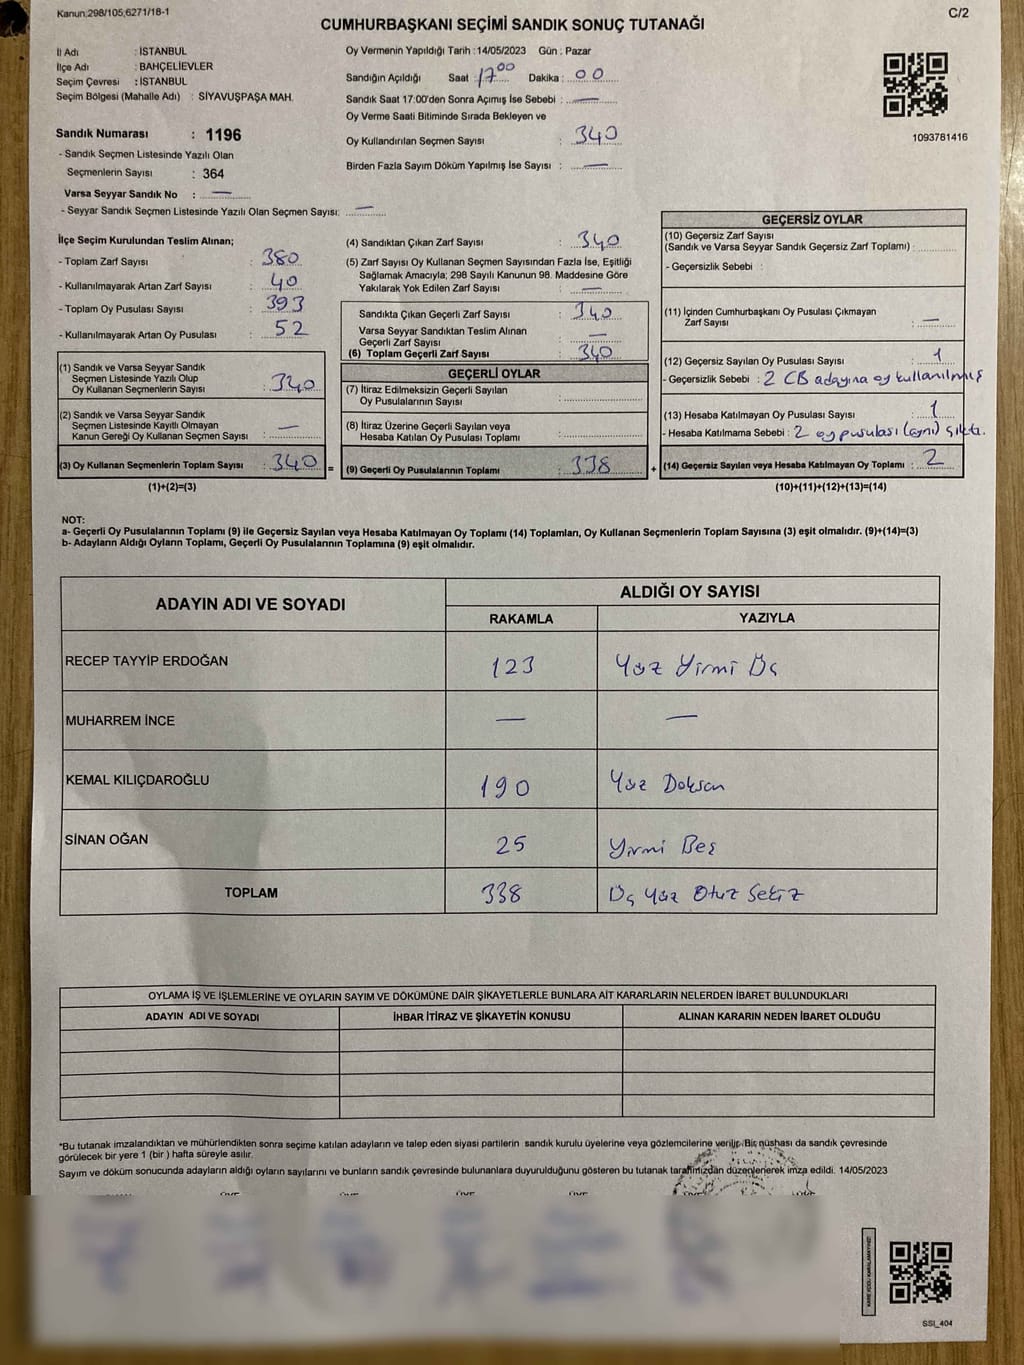 Kanun:298/105;6271/18-1
C/2
CUMHURBAŞKANI SEÇİMİ SANDIK SONUÇ TUTANAĞI
İl Adı : İSTANBUL
İlçe Adı : BAHÇELİEVLER
Seçim Çevresi : İSTANBUL
Seçim Bölgesi (Mahalle Adı) : SİYAVUŞPAŞA MAH.
Sandık Numarası : 1196
- Sandık Seçmen Listesinde Yazılı Olan
Seçmenlerin Sayısı : 364
Varsa Seyyar Sandık No : —
- Seyyar Sandık Seçmen Listesinde Yazılı Olan Seçmen Sayısı: —
Oy Vermenin Yapıldığı Tarih : 14/05/2023 Gün : Pazar
Sandığın Açıldığı Saat : 17 00 Dakika : 00
Sandık Saat 17:00'den Sonra Açımış İse Sebebi : —
Oy Verme Saati Bitiminde Sırada Bekleyen ve
Oy Kullandırılan Seçmen Sayısı : 340
Birden Fazla Sayım Döküm Yapılmış İse Sayısı : —
1093781416
İlçe Seçim Kurulundan Teslim Alınan;
- Toplam Zarf Sayısı : 380
- Kullanılmayarak Artan Zarf Sayısı : 40
- Toplam Oy Pusulası Sayısı : 393
- Kullanılmayarak Artan Oy Pusulası : 52
(1) Sandık ve Varsa Seyyar Sandık
Seçmen Listesinde Yazılı Olup
Oy Kullanan Seçmenlerin Sayısı : 340
(2) Sandık ve Varsa Seyyar Sandık
Seçmen Listesinde Kayıtlı Olmayan
Kanun Gereği Oy Kullanan Seçmen Sayısı : —
(3) Oy Kullanan Seçmenlerin Toplam Sayısı : 340 =
(1)+(2)=(3)
(4) Sandıktan Çıkan Zarf Sayısı : 340
(5) Zarf Sayısı Oy Kullanan Seçmen Sayısından Fazla İse, Eşitliği
Sağlamak Amacıyla; 298 Sayılı Kanunun 98. Maddesine Göre
Yakılarak Yok Edilen Zarf Sayısı : —
Sandıkta Çıkan Geçerli Zarf Sayısı : 340
Varsa Seyyar Sandıktan Teslim Alınan
Geçerli Zarf Sayısı : —
(6) Toplam Geçerli Zarf Sayısı : 340
GEÇERLİ OYLAR
(7) İtiraz Edilmeksizin Geçerli Sayılan
Oy Pusulalarının Sayısı :
(8) İtiraz Üzerine Geçerli Sayılan veya
Hesaba Katılan Oy Pusulası Toplamı :
(9) Geçerli Oy Pusulalarının Toplamı : 338 +
GEÇERSİZ OYLAR
(10) Geçersiz Zarf Sayısı
(Sandık ve Varsa Seyyar Sandık Geçersiz Zarf Toplamı) :
- Geçersizlik Sebebi :
(11) İçinden Cumhurbaşkanı Oy Pusulası Çıkmayan
Zarf Sayısı : —
(12) Geçersiz Sayılan Oy Pusulası Sayısı : 1
- Geçersizlik Sebebi : 2 CB adayına oy kullanılmış
(13) Hesaba Katılmayan Oy Pusulası Sayısı : 1
- Hesaba Katılmama Sebebi : 2 oy pusulası (aynı) çıktı.
(14) Geçersiz Sayılan veya Hesaba Katılmayan Oy Toplamı : 2
(10)+(11)+(12)+(13)=(14)
NOT:
a- Geçerli Oy Pusulalarının Toplamı (9) ile Geçersiz Sayılan veya Hesaba Katılmayan Oy Toplamı (14) Toplamları, Oy Kullanan Seçmenlerin Toplam Sayısına (3) eşit olmalıdır. (9)+(14)=(3)
b- Adayların Aldığı Oyların Toplamı, Geçerli Oy Pusulalarının Toplamına (9) eşit olmalıdır.
ADAYIN ADI VE SOYADI
ALDIĞI OY SAYISI
RAKAMLA YAZIYLA
RECEP TAYYİP ERDOĞAN 123 Yüz Yirmi Üç
MUHARREM İNCE — —
KEMAL KILIÇDAROĞLU 190 Yüz Doksan
SİNAN OĞAN 25 Yirmi Beş
TOPLAM 338 Üç Yüz Otuz Sekiz
OYLAMA İŞ VE İŞLEMLERİNE VE OYLARIN SAYIM VE DÖKÜMÜNE DAİR ŞİKAYETLERLE BUNLARA AİT KARARLARIN NELERDEN İBARET BULUNDUKLARI
ADAYIN ADI VE SOYADI İHBAR İTİRAZ VE ŞİKAYETİN KONUSU ALINAN KARARIN NEDEN İBARET OLDUĞU
*Bu tutanak imzalandıktan ve mühürlendikten sonra seçime katılan adayların ve talep eden siyasi partilerin sandık kurulu üyelerine veya gözlemcilerine verilir. Bir nüshası da sandık çevresinde
görülecek bir yere 1 (bir ) hafta süreyle asılır.
Sayım ve döküm sonucunda adayların aldığı oyların sayılarını ve bunların sandık çevresinde bulunanlara duyurulduğunu gösteren bu tutanak tarafımızdan düzenlenerek imza edildi. 14/05/2023
KARE KODU KARALAMAYINIZ!
SSI_404